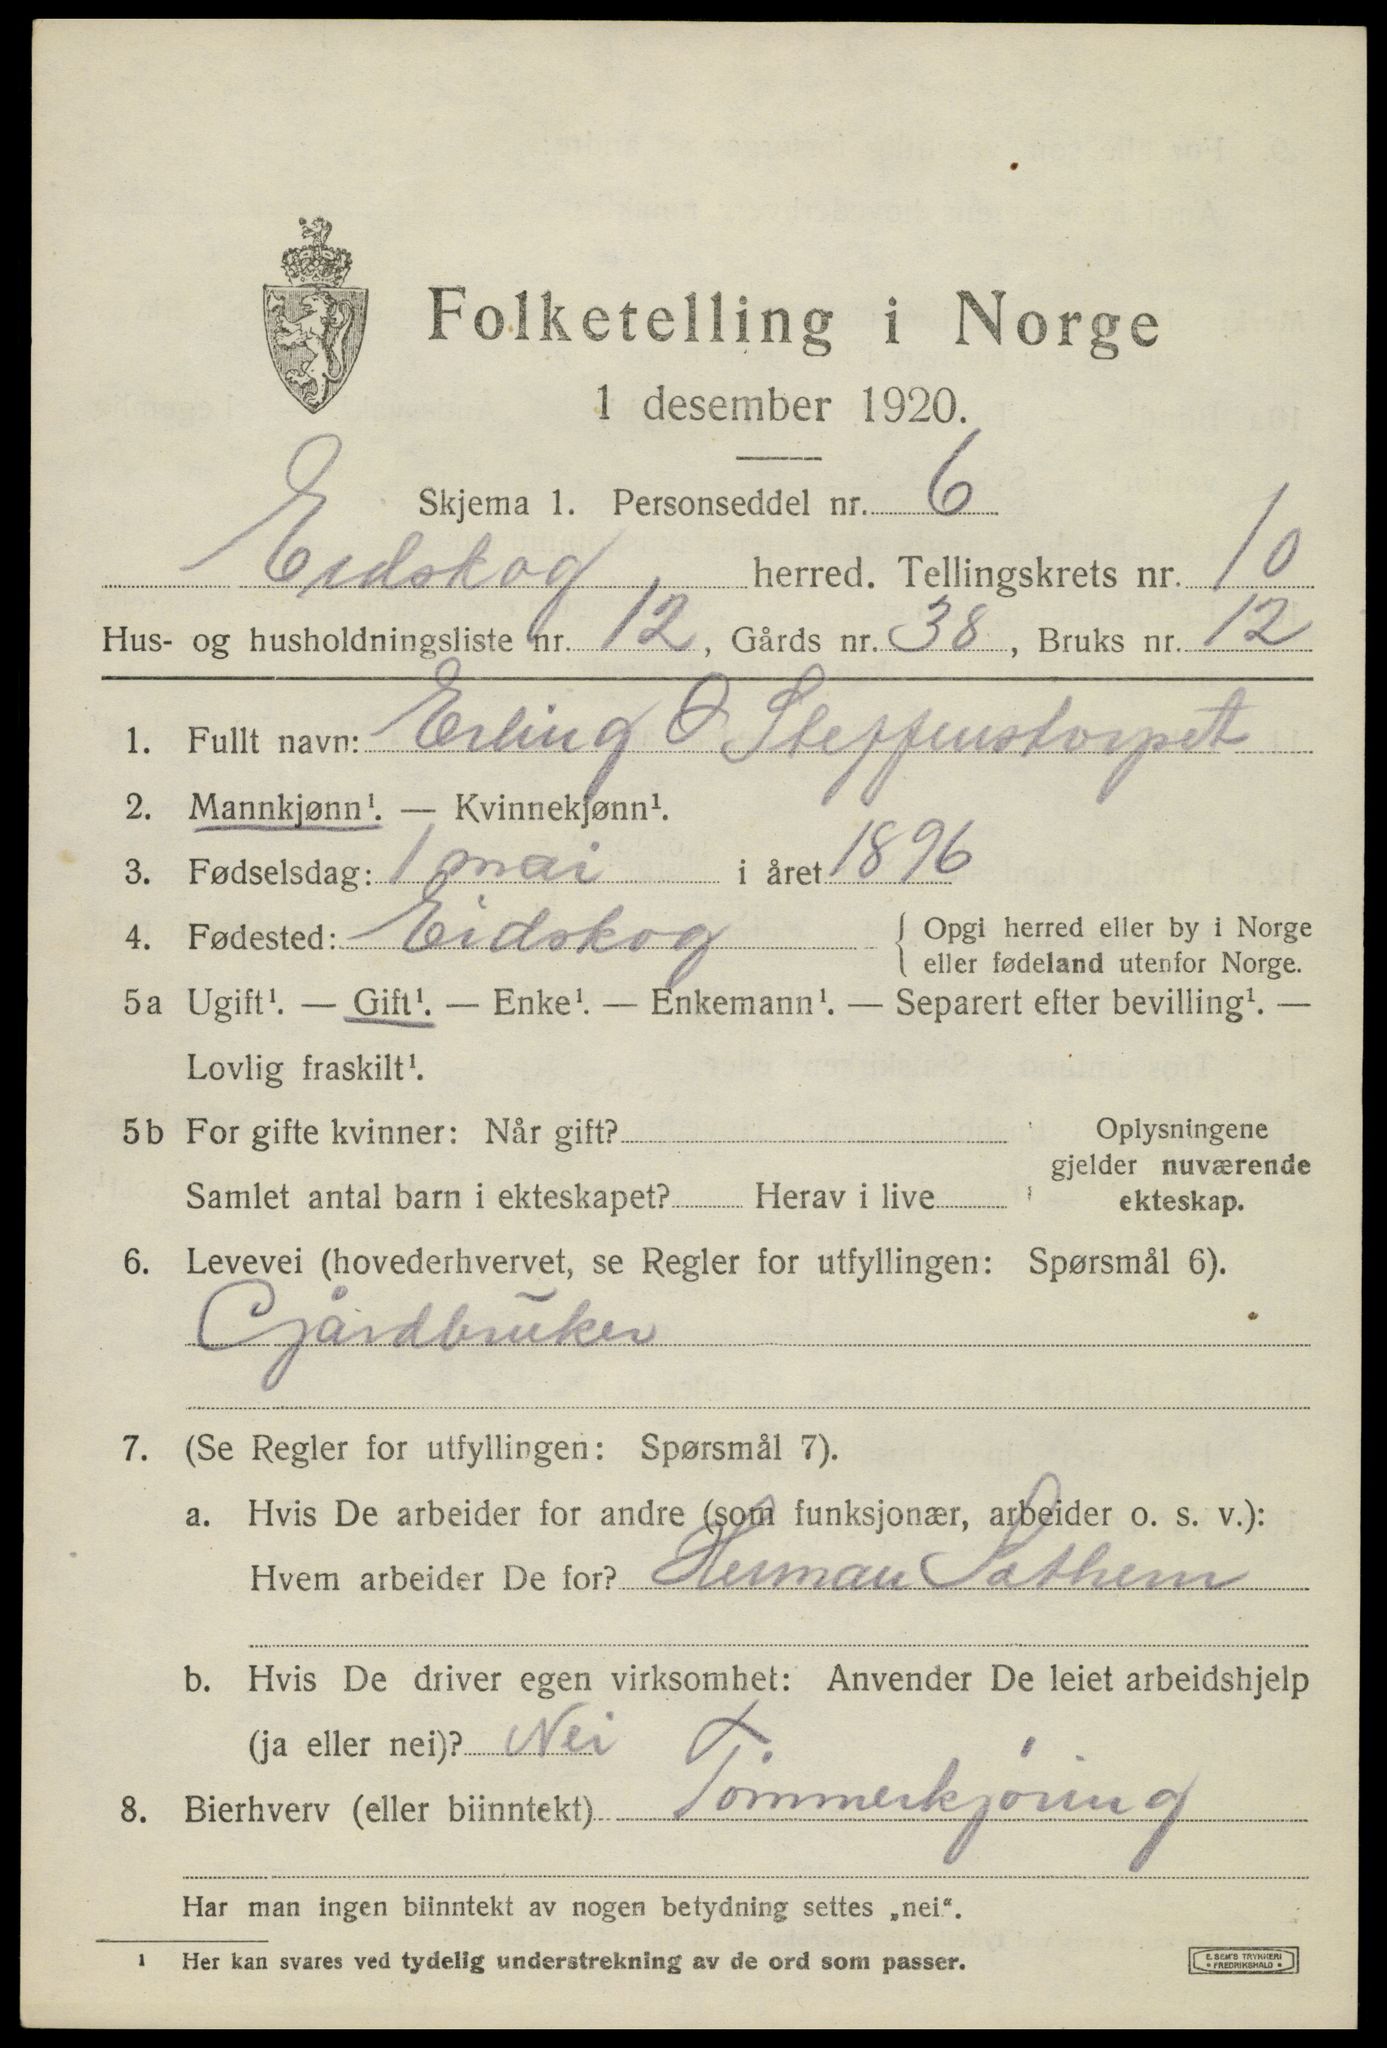 Folketelling i Norge
1 desember 1920.
Skjema 1. Personseddel nr. 6
Eidskog herred. Tellingskrets nr. 10
Hus- og husholdningsliste nr. 12, Gårds nr. 38, Bruks nr. 12
1. Fullt navn: Erling O Steffenstorpet
2. Mannkjønn¹. — Kvinnekjønn¹.
3. Fødselsdag: 1 mai i året 1896
4. Fødested: Eidskog { Opgi herred eller by i Norge
eller fødeland utenfor Norge.
5a Ugift¹. — Gift¹. — Enke¹. — Enkemann¹. — Separert efter bevilling¹. —
Lovlig fraskilt¹.
5b For gifte kvinner: Når gift? Oplysningene
gjelder nuværende
Samlet antal barn i ekteskapet? Herav i live ekteskap.
6. Levevei (hovederhvervet, se Regler for utfyllingen: Spørsmål 6).
Gjårdbruker
7. (Se Regler for utfyllingen: Spørsmål 7).
a. Hvis De arbeider for andre (som funksjonær, arbeider o. s. v.):
Hvem arbeider De for? Herman
b. Hvis De driver egen virksomhet: Anvender De leiet arbeidshjelp
(ja eller nei)? Nei
8. Bierhverv (eller biinntekt) Tömmerkjöring
Har man ingen biinntekt av nogen betydning settes „nei“.
¹ Her kan svares ved tydelig understrekning av de ord som passer.
E. SEM'S TRYKKERI
• FREDRIKSHALD •